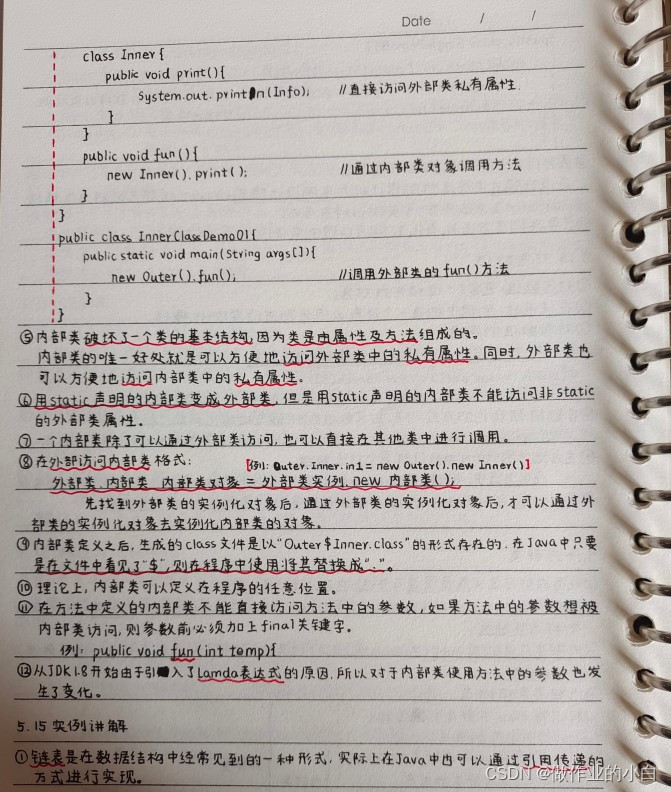 Date / /
class Inner {
public void print(){
System.out.println(Info); //直接访问外部类私有属性.
}
}
public void fun(){
new Inner().print(); //通过内部类对象调用方法
}
}
public class InnerClassDemo01{
public static void main(String args[]){
new Outer().fun(); //调用外部类的fun()方法
}
}
⑤内部类破坏了一个类的基本结构,因为类是由属性及方法组成的。
内部类的唯一好处就是可以方便地访问外部类中的私有属性。同时,外部类也
可以方便地访问内部类中的私有属性。
⑥用static声明的内部类变成外部类,但是用static声明的内部类不能访问非static
的外部类属性。
⑦一个内部类除了可以通过外部类访问,也可以直接在其他类中进行调用。
⑧在外部访问内部类格式: [例: Outer.Inner.in1 = new Outer().new Inner()]
外部类.内部类 内部类对象 = 外部类实例.new 内部类();
先找到外部类的实例化对象后,通过外部类的实例化对象后,才可以通过外
部类的实例化对象去实例化内部类的对象。
⑨内部类定义之后,生成的class文件是以"Outer$Inner.class"的形式存在的.在Java中只要
是在文件中看见了"$",则在程序中使用将其替换成"."。
⑩理论上,内部类可以定义在程序的任意位置。
⑪在方法中定义的内部类不能直接访问方法中的参数,如果方法中的参数想被
内部类访问,则参数前必须加上final关键字。
例: public void fun(int temp){
⑫从JDK1.8开始由于引入了Lamda表达式的原因,所以对于内部类使用方法中的参数也发
生了变化。
5.15实例讲解
①链表是在数据结构中经常见到的一种形式,实际上在Java中也可以通过引用传递的
方式进行实现。
CSDN @做作业的小白